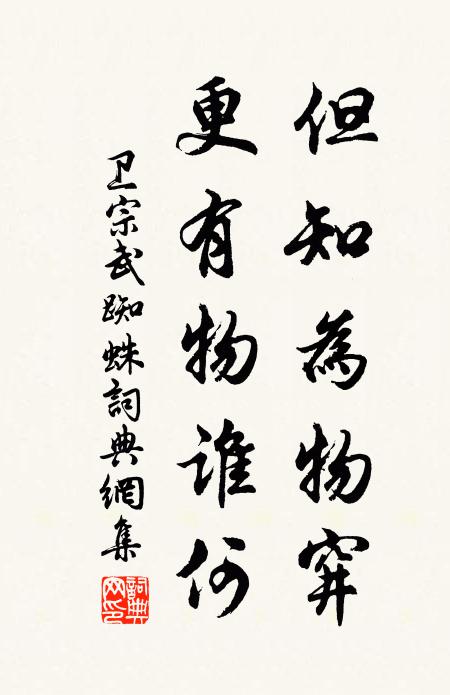 但知為物穽
更有物誰何
卫宗武蜘蛛詞典網集
詞典网印